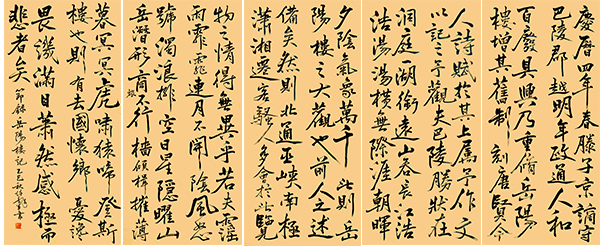 慶曆四年春滕子京謫守
巴陵郡越明年政通人和
百廢具興乃重脩岳陽
樓增其舊制刻唐賢今
人詩賦於其上屬予作文
以記之予觀夫巴陵勝狀在
洞庭一湖銜遠山吞長江浩
浩湯湯橫無際涯朝暉
夕陰氣象萬千此則岳
陽樓之大觀也前人之述
備矣然則北通巫峽南極
瀟湘遷客騷人多會於此覽
物之情得無異乎若夫霪
雨霏霏連月不開陰風怒
號濁浪排空日星隱曜山
岳潛形商旅不行檣傾楫摧薄
暮冥冥虎嘯猿啼登斯
樓也則有去國懷鄉憂讒
畏譏滿目蕭然感極而
悲者矣 節錄岳陽樓記 書